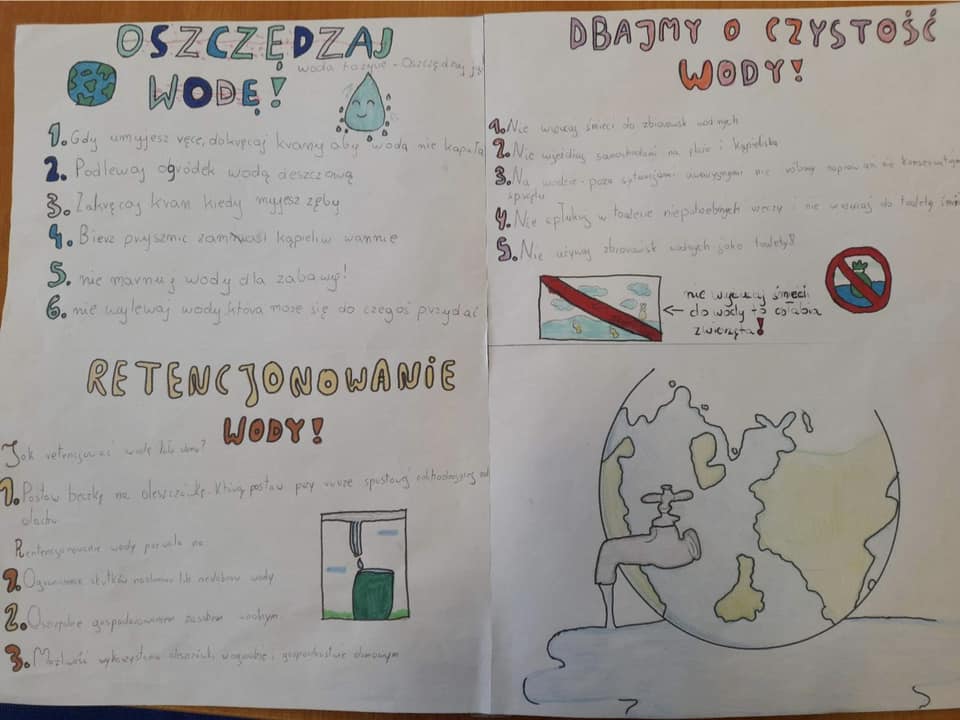 OSZCZĘDZAJ
WODĘ!
woda to życie - Oszczędzaj ją!
1. Gdy umyjesz ręce, dokręcaj krany aby woda nie kapała
2. Podlewaj ogródek wodą deszczową
3. Zakręcaj kran kiedy myjesz zęby
4. Bierz prysznic zamiast kąpieli w wannie
5. nie marnuj wody dla zabawy!
6. nie wylewaj wody, która może się do czegoś przydać
RETENCJONOWANIE
WODY!
Jak retencjonować wodę koło domu?
1. Postaw beczkę na deszczówkę. Którą postaw przy rurze spustowej odchodzącej od
dachu
Rentencjonowanie wody pozwala na
1. Ograniczenie skutków nadmiaru lub niedoboru wody
2. Oszczędne gospodarowanie zasobem wodnym
3. Możliwość wykorzystania deszczówki w ogrodzie i gospodarstwie domowym
DBAJMY O CZYSTOŚĆ
WODY!
1. Nie wrzucaj śmieci do zbiorowisk wodnych
2. Nie wjeżdżaj samochodami na plaże i kąpieliska
3. Na wodzie - poza sytuacjami awaryjnymi nie róbmy napraw ani nie konserwujmy
sprzętu
4. Nie spłukuj w toalecie niepotrzebnych rzeczy i nie wrzucaj do toalety śmieci
5. Nie używaj zbiorowisk wodnych jako toalety!
nie wyrzucaj śmieci
do wody to osłabia
zwierzęta!